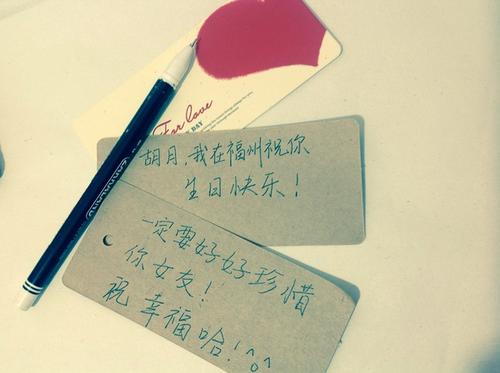 For love
DAY
胡月,我在福州祝你
生日快乐!
一定要好好珍惜
你女友!
祝 幸福哈!^o^